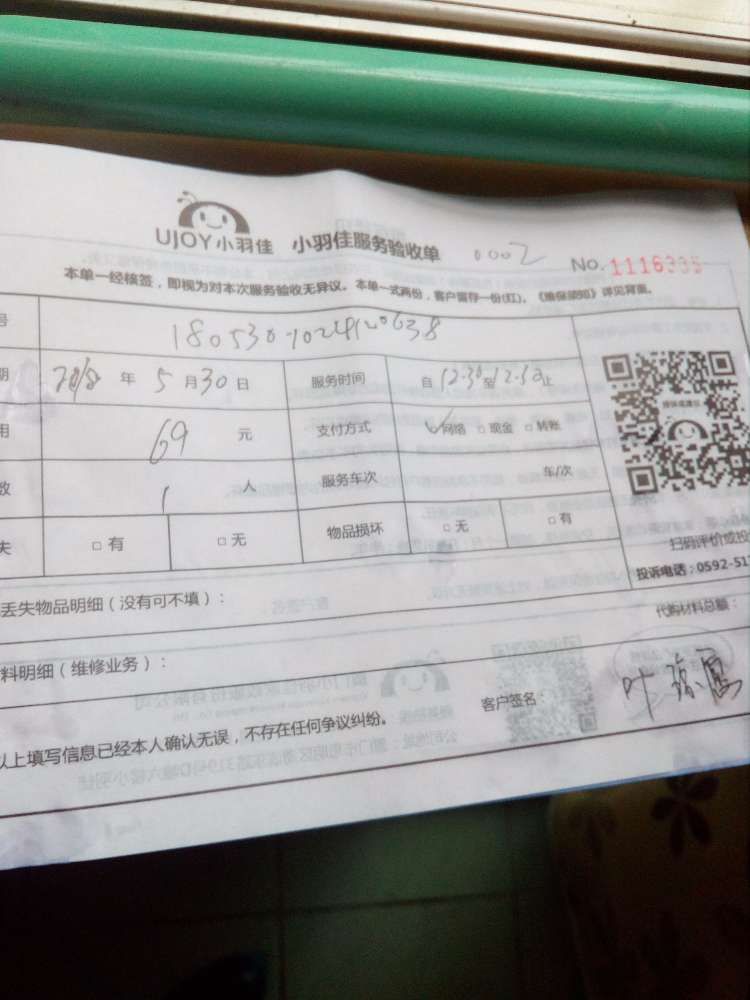 UJOY小羽佳 小羽佳服务验收单 0002 No. 1116335
本单一经核签，即视为对本次服务验收无异议。本单一式两份，客户留存一份(红)。《维保须知》详见背面。
号 180530-1024120638
期 2018 年 5 月 30 日 服务时间 自 12-30 至 12-50 止
用 69 元 支付方式 ☑网络 □现金 □转账
数 1 人 服务车次 车/次
失 □有 □无 物品损坏 □无 □有
扫码评价或投
投诉电话：0592-51
丢失物品明细（没有可不填）：
代购材料总额：
料明细（维修业务）：
以上填写信息已经本人确认无误，不存在任何争议纠纷。 客户签名： 叶